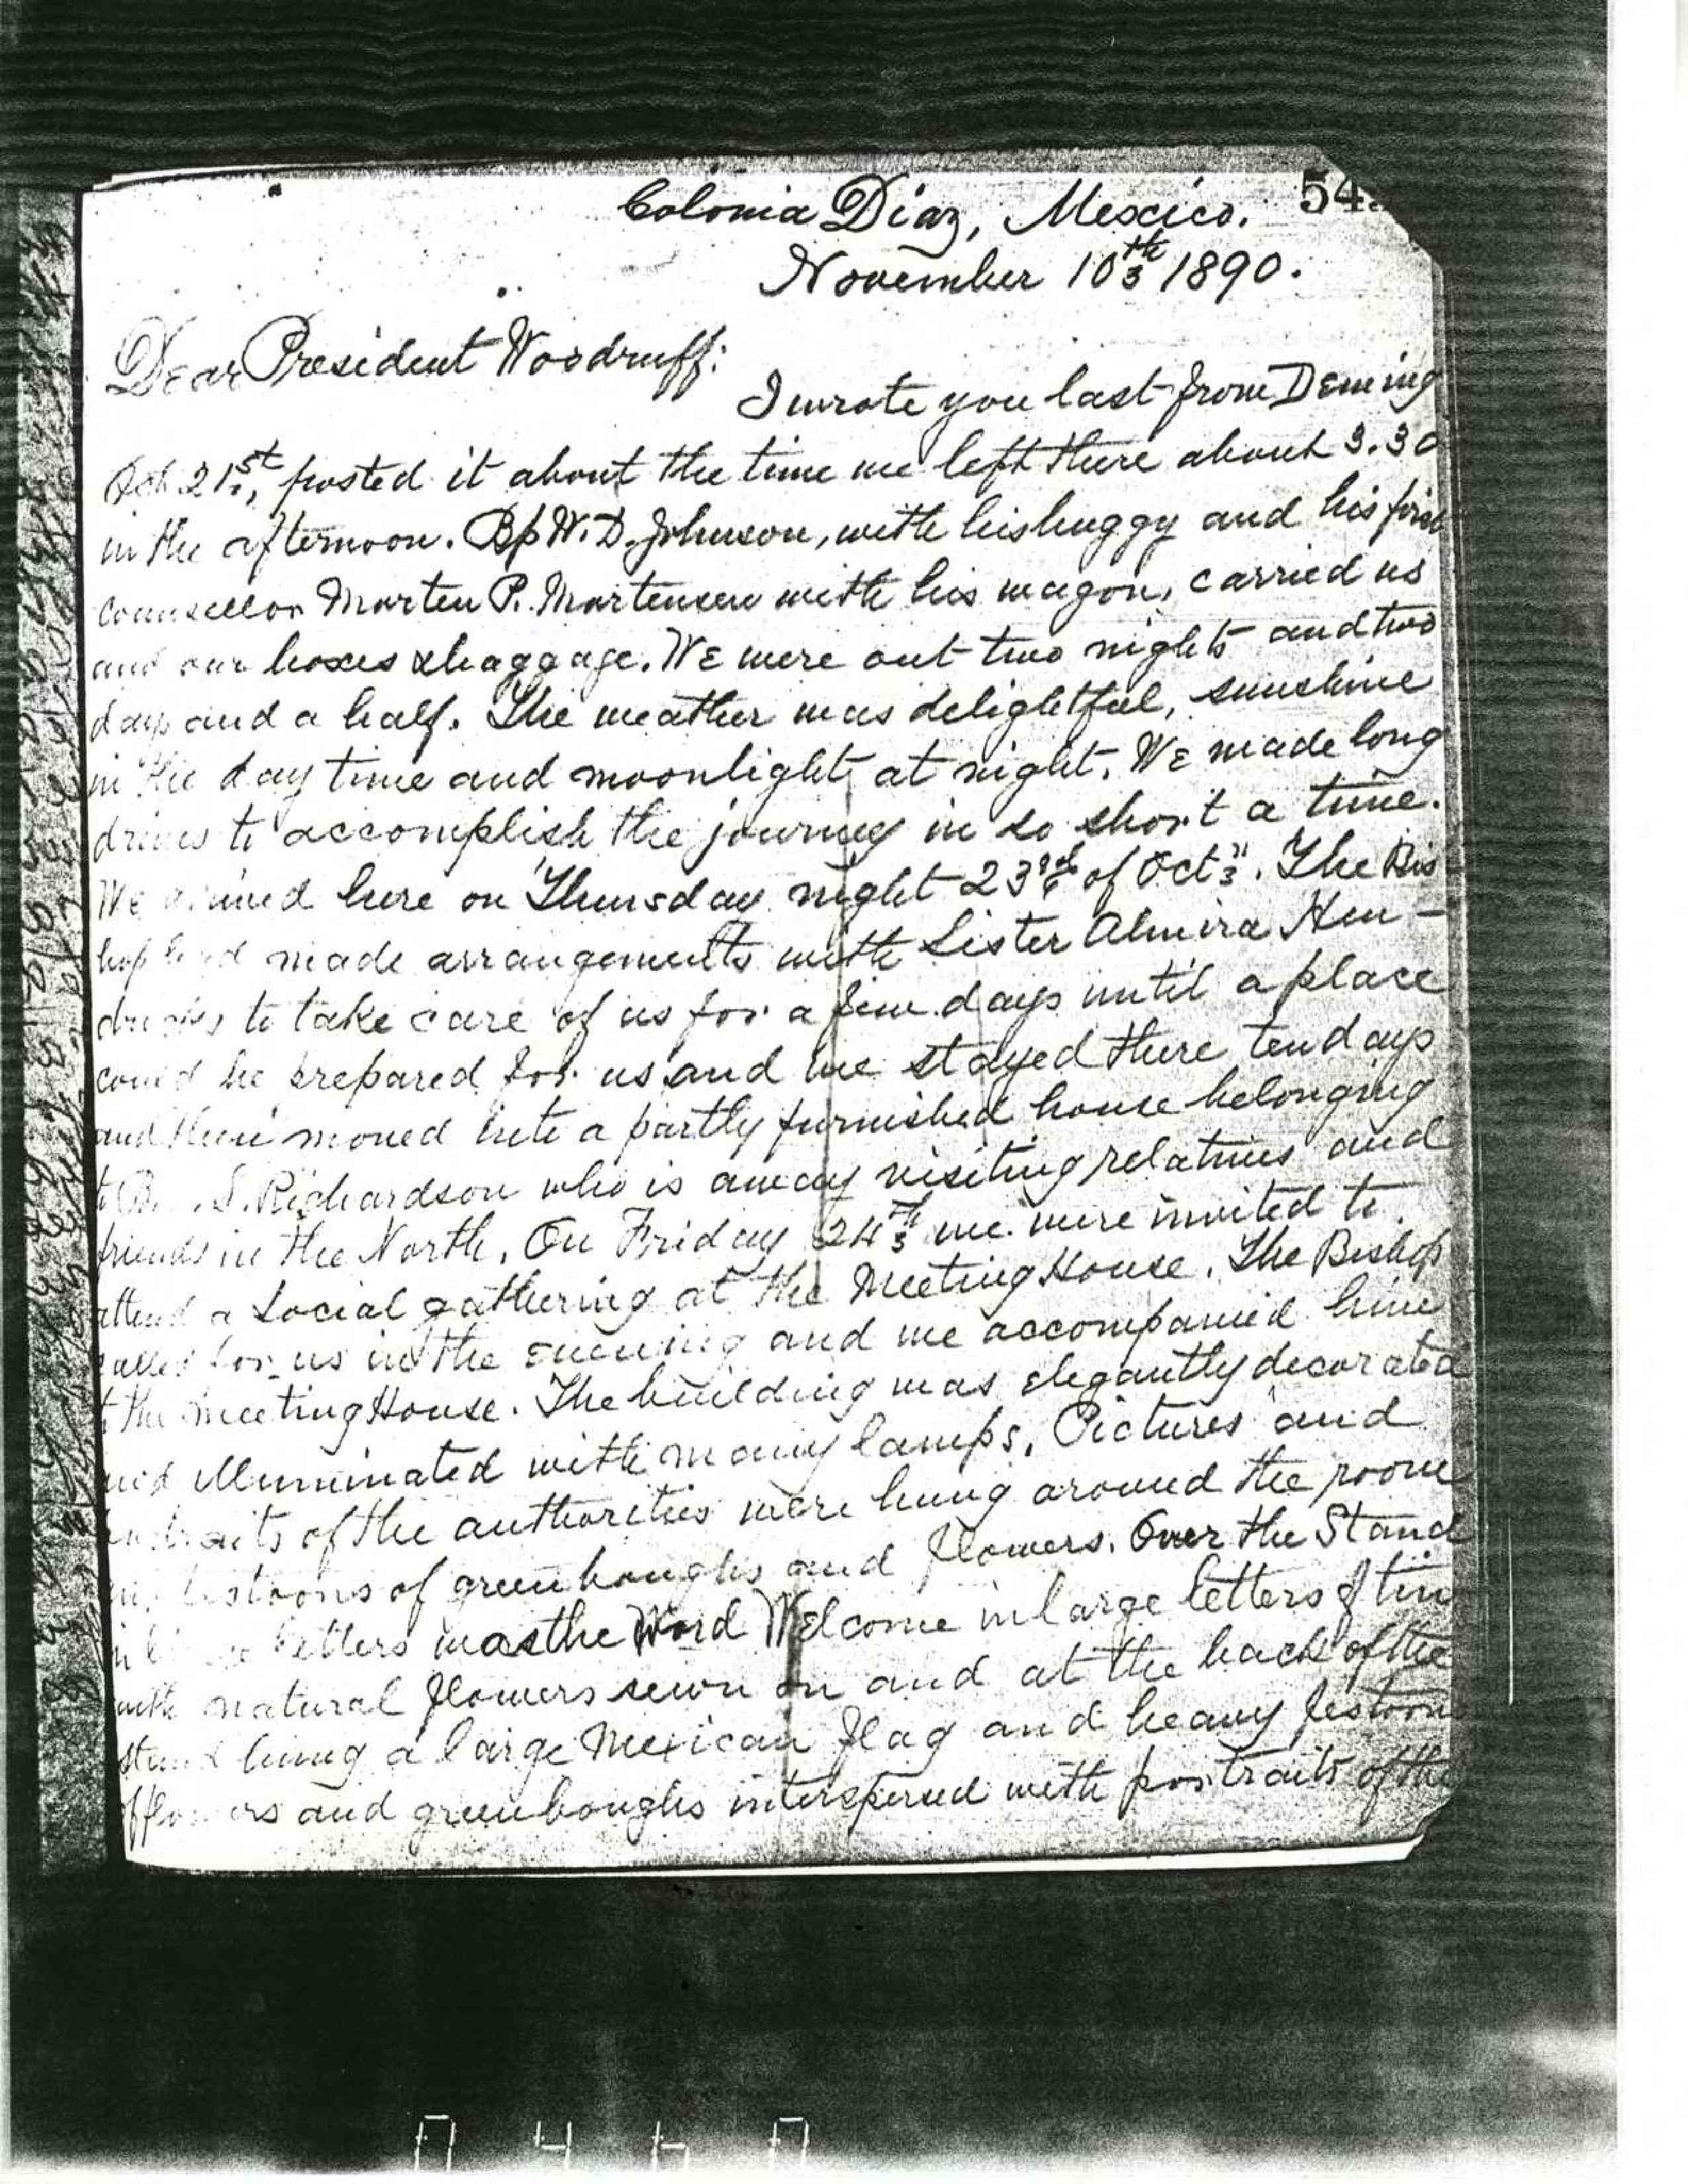 54
Colonia Diaz, Mexico.
November 10th 1890.
Dear President Woodruff:
I wrote you last from Deming
Oct 21st, posted it about the time we left there about 3.30
in the afternoon. Bp W. D. Johnson, with his buggy and his first
counsellor Morten P. Mortensen with his wagon, carried us
and our boxes & baggage. We were out two nights and two
days and a half. The weather was delightful, sunshine
in the day time and moonlight at night. We made long
drives to accomplish the journey in so short a time.
We arrived here on Thursday night 23rd of Oct. The Bis
hop had made arrangements with Sister Almira Hen-
dricks to take care of us for a few days until a place
could be prepared for us and we stayed there ten days
and then moved into a partly furnished house belonging
to S. Richardson who is away visiting relatives and
friends in the North. On Friday 24th we were invited to
attend a Social gathering at the Meeting House. The Bishop
called for us in the evening and we accompanied him
to the Meeting House. The building was elegantly decorated
and illuminated with many lamps, Pictures and
portraits of the authorities were hung around the room
festoons of green boughs and flowers. Over the Stand
letters was the Word Welcome in large letters of tin
with natural flowers sewn on and at the back of the
stand hung a large Mexican flag and heavy festoons
of flowers and green boughs interspersed with portraits of the
0460